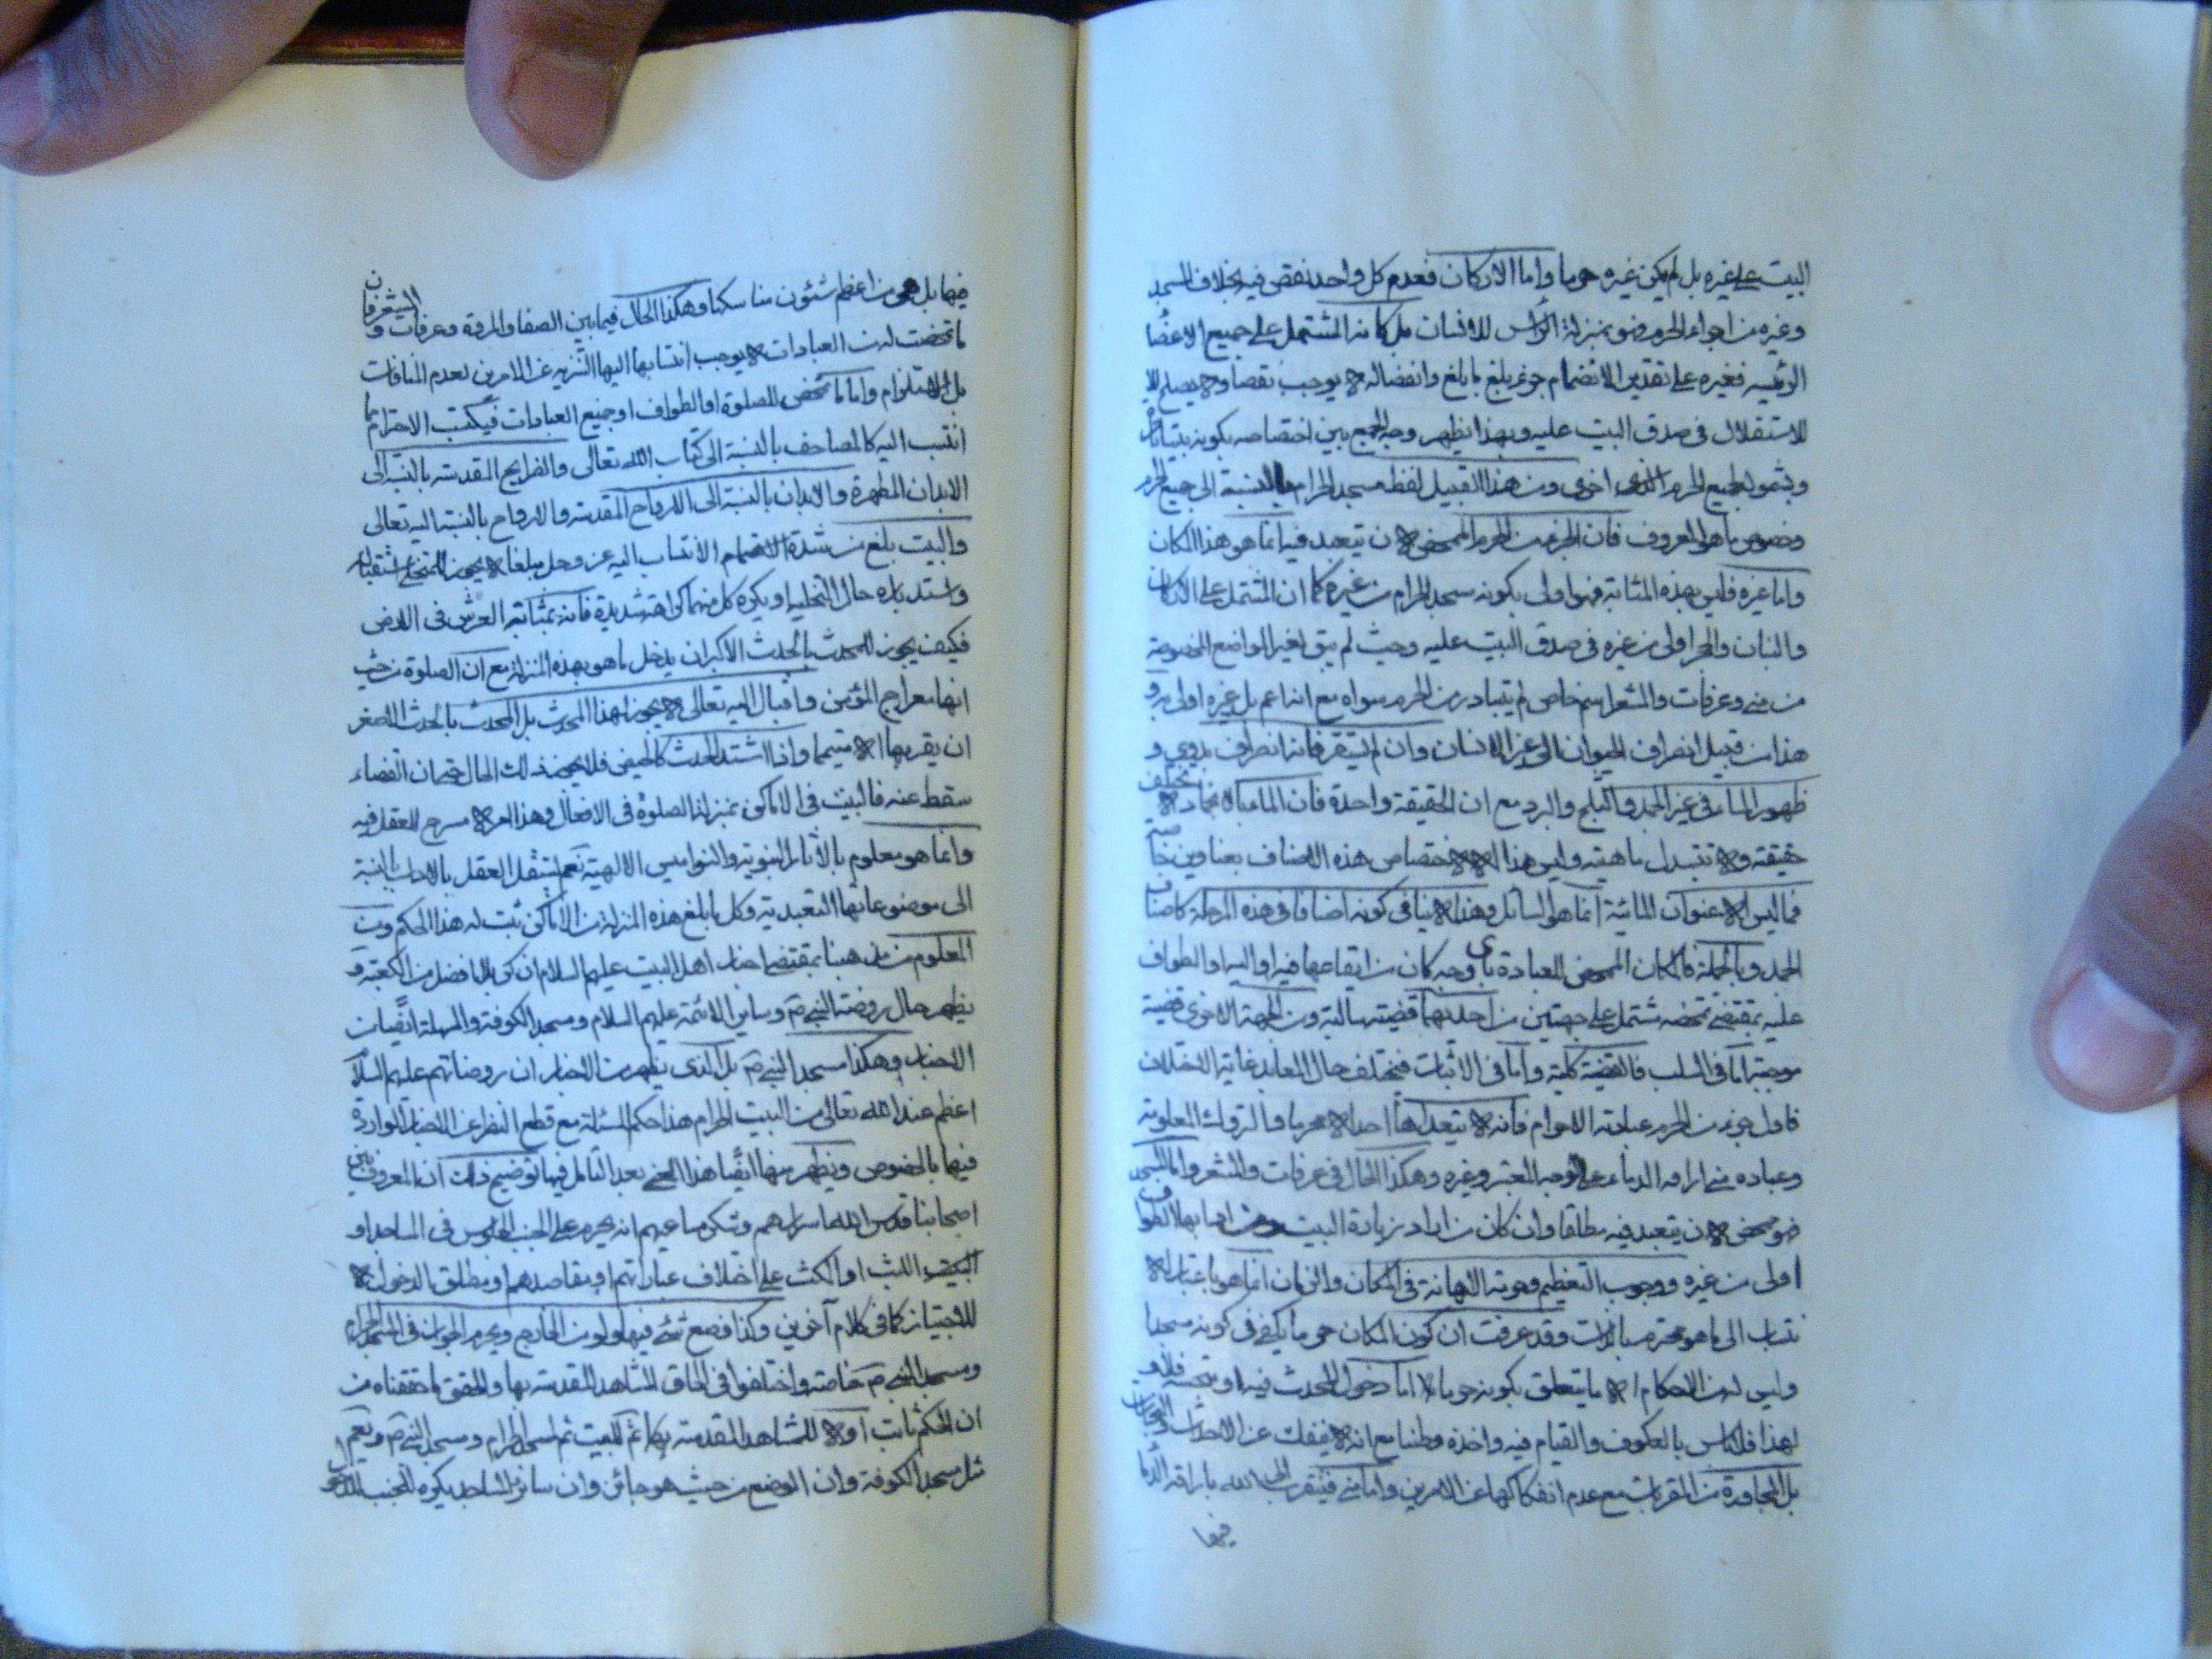 البيت على غيره بل لم يكن غيره حرما واما الاركان فعدم كل واحد نقص فيه بخلاف المسجد
وغيره من اجزاء الحرم فهو بمنزلة الراس للانسان بل كانه المشتمل على جميع الاعضا
الرئيسه فغيره على تقدير الانضمام جزء بلغ ما بلغ وانفصاله لا يوجب نقصا ولا يصلح
للاستقلال في صدق البيت عليه وبهذا يظهر وجه الجمع بين اختصاصه بكونه بيتا
وشموله لجميع الحرم اخرى ومن هذا القبيل لفظ مسجد الحرام بالنسبة الى جميع الحرم
وخصوص ما هو المعروف فان الجزء من الحرم المتمحض لان يتعبد فيه انما هو هذا المكان
واما غيره فليس بهذه المثابة فهو اولى بكونه مسجد الحرام من غيره كما ان المشتمل على الاركان
والبنيان والحجر اولى من غيره في صدق البيت عليه وحيث لم يبق لغير المواضع المخصوصة
من منى وعرفات والمشعر اسم خاص لم يتبادر من الحرم سواه مع انه اعم بل غيره اولى به و
هذا من قبيل انصراف الحيوان الى غير الانسان وان لم يستقر فانه انصراف بدوي و
ظهور الماء في غير الجمد والثلج والبرد مع ان الحقيقة واحدة فان الماء بانجماده لا تختلف
حقيقته ولا تتبدل ماهيته وليس هذا الا لاختصاص هذه الاصناف بعناوين خاصة
فما ليس له الا عنوان المائية انما هو السائل وهذا لا ينافي كونه اضافا في هذه المرحلة كاصناف
الجمد وبالجملة فالمكان المتمحض للعبادة باى وجه كان من ايقاعها فيه او اليه او الطواف
عليه بمقتضى تمحضه مشتمل على جهتين من احديهما قضيته سالبة ومن الجهة الاخرى قضية
موجبة اما في السلب فالقضية كلية واما في الاثبات فيختلف حال المعابد غاية الاختلاف
فاول جزء من الحرم عبادته الاحرام فانه لا يتعداها احد الا محرما والتروك المعلومة
وعباده منى اراقه الدماء على الوجه المعتبر وغيره وهكذا الحال في عرفات والمشعر واما المسجد
فهو متمحض لان يتعبد فيه مطلقا وان كان من اراد زيارة البيت الطواف
اولى من غيره ووجوب التعظيم وحرمة الاهانة في المكان والزمان انما هو باعتبار الا
نتساب الى ما هو محترم بالذات وقد عرفت ان كون المكان حرما يكفي في كونه مسجدا
وليس له من الاحكام الا ما يتعلق بكونه حرما اما دخول المحدث فيه او تنجسه فلا و
لهذا فلا باس بالعكوف والقيام فيه واخذه وطنا مع انه لا ينفك عن الاحداث
بل المجاورة من القربات مع عدم انفكاكها عن الامرين واما منى فيتقرب الى الله باراقة الدماء
فيها
فيها بل هى من اعظم شئون مناسكها وهكذا الحال فيما بين الصفا والمروة وعرفات و المشعر فان
ما تمحضت له من العبادات لا يوجب انتسابها اليها التنزيه عن الامرين لعدم المنافات
بل الاستلزام واما ما تمحض للصلوة او الطواف او جميع العبادات فيكتسب الاحترام مما
انتسب اليه كالمصاحف بالنسبة الى كتاب الله تعالى والضرايح المقدسه بالنسبة الى
الابدان المطهرة والابدان بالنسبة الى الارواح المقدسه والارواح بالنسبة اليه تعالى
والبيت بلغ من شدة الانضمام الانتساب اليه عز وجل مبلغا لا يجوز للمتخلى استقباله
واستدباره حال التخليه او يكره كل منهما كراهة شديدة فانه بمثابة العرش في الارض
فكيف يجوز للمحدث بالحدث الاكبر ان يدخل ما هو بهذه المنزلة مع ان الصلوة من حيث
انها معراج المؤمن واقبال اليه تعالى لا يجوز لهذا المحدث بل المحدث بالحدث الاصغر
ان يقربها الا متيمما واذا اشتد الحدث كالحيض فلا يجوز ذلك الحال حتى ان القضاء
سقط عنه فالبيت في الاماكن بمنزلة الصلوة في الافعال وهذا امر لا مسرح للعقل فيه
وانما هو معلوم بالاثار النبوية والنواميس الالهية نعم يستقل العقل بالاداب بالنسبة
الى موضوعاتها التعبدية وكل ما بلغ هذه المنزلة من الاماكن ثبت له هذا الحكم ومن
المعلوم من مذهبنا بمقتضى اخبار اهل البيت عليهم السلام ان كربلا افضل من الكعبة و
يظهر حال روضة النبي ص وساير الائمة عليهم السلام ومسجد الكوفة والسهلة ايضا من
الاخبار وهكذا مسجد النبي ص بل الذى يظهر من الاخبار ان روضاتهم عليهم السلام
اعظم عند الله تعالى من البيت الحرام هذا حكم المسئلة مع قطع النظر عن الاخبار الواردة
فيها بالخصوص ويظهر منها ايضا هذا المعنى بعد التامل فيها توضيح ذلك ان المعروف بين
اصحابنا قدس الله اسرارهم وشكر مساعيهم انه يحرم على الجنب الجلوس في المساجد او
اللبث او المكث على اختلاف عباراتهم او مقاصدهم او مطلق الدخول لا
للاجتياز كما في كلام آخرين وكذا وضع شئ فيها ولو من الخارج ويحرم الجواز في المسجد الحرام
ومسجد النبي ص خاصة واختلفوا في الحاق المشاهد المقدسه بها والمحقق ما حققناه من
ان الحكم ثابت اولا للمشاهد المقدسه ثم للبيت ثم لمسجد الحرام ومسجد النبي ص ويعم
مثل مسجد الكوفة وان الوضع من حيث هو جائز وان سائر المساجد يكره للجنب الدخول